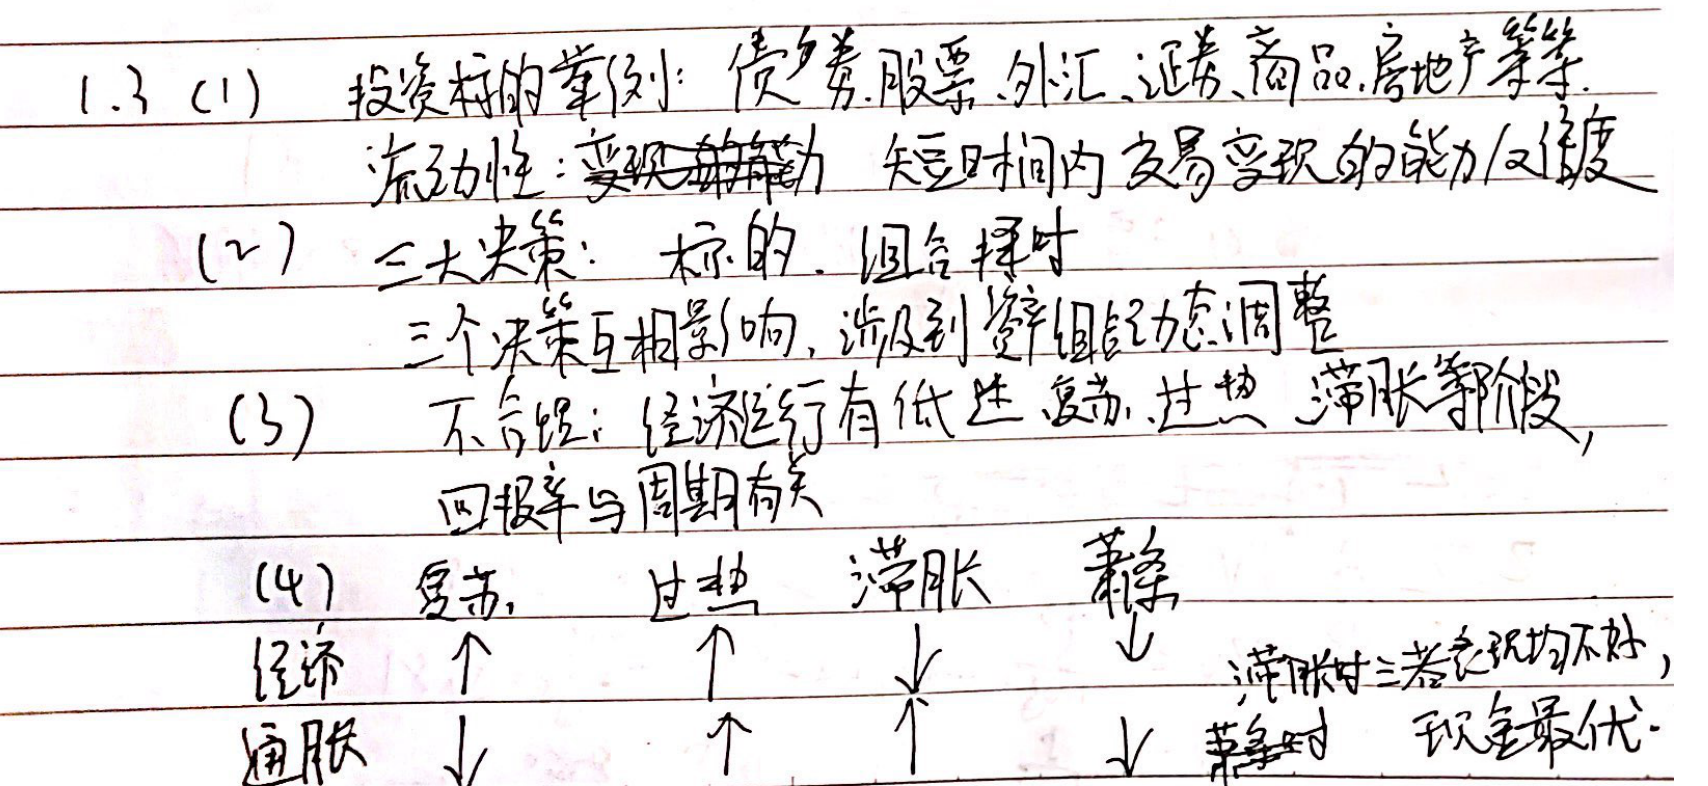 1.3 (1) 投资标的举例: 债券、股票、外汇、证券、商品、房地产等等.
流动性: 短时间内交易变现的能力/速度
(2) 三大决策: 标的、组合 择时
三个决策互相影响, 涉及到资产组合动态调整
(3) 不合理: 经济运行有低迷、复苏、过热 滞胀等阶段,
回报率与周期有关
(4) 复苏 过热 滞胀 萧条
经济 ↑ ↑ ↓ ↓ 滞胀时三者表现均不好,
通胀 ↓ ↑ ↑ ↓ 现金最优.